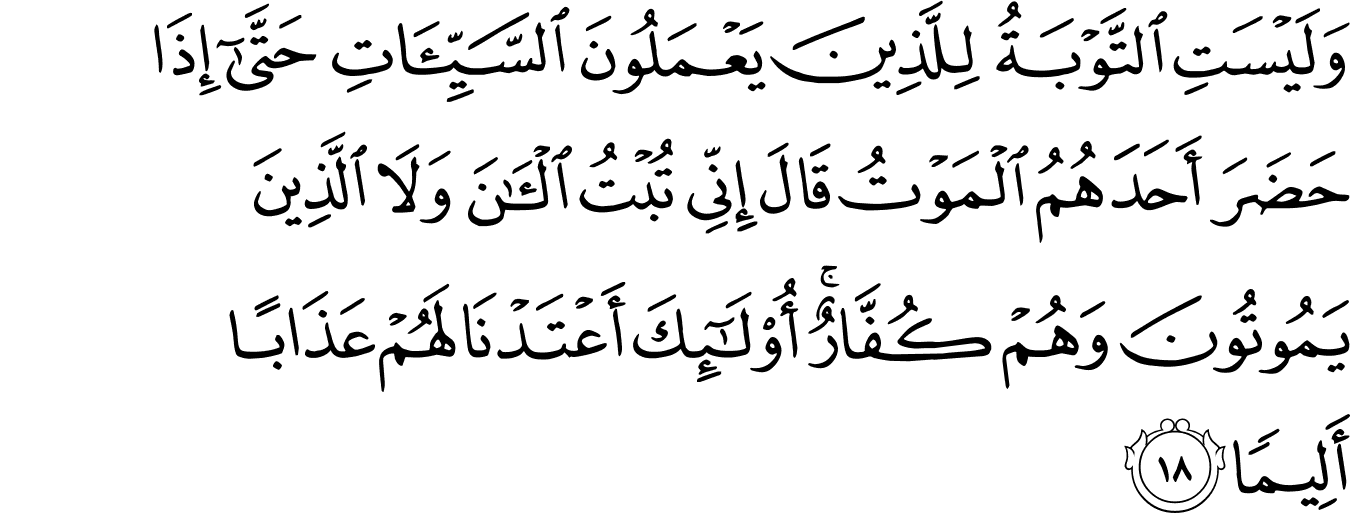 وَلَيْسَتِ ٱلتَّوْبَةُ لِلَّذِينَ يَعْمَلُونَ ٱلسَّيِّـَٔاتِ حَتَّىٰٓ إِذَا
حَضَرَ أَحَدَهُمُ ٱلْمَوْتُ قَالَ إِنِّى تُبْتُ ٱلْـَٰٔنَ وَلَا ٱلَّذِينَ
يَمُوتُونَ وَهُمْ كُفَّارٌ ۚ أُو۟لَـٰٓئِكَ أَعْتَدْنَا لَهُمْ عَذَابًا
أَلِيمًا ١٨